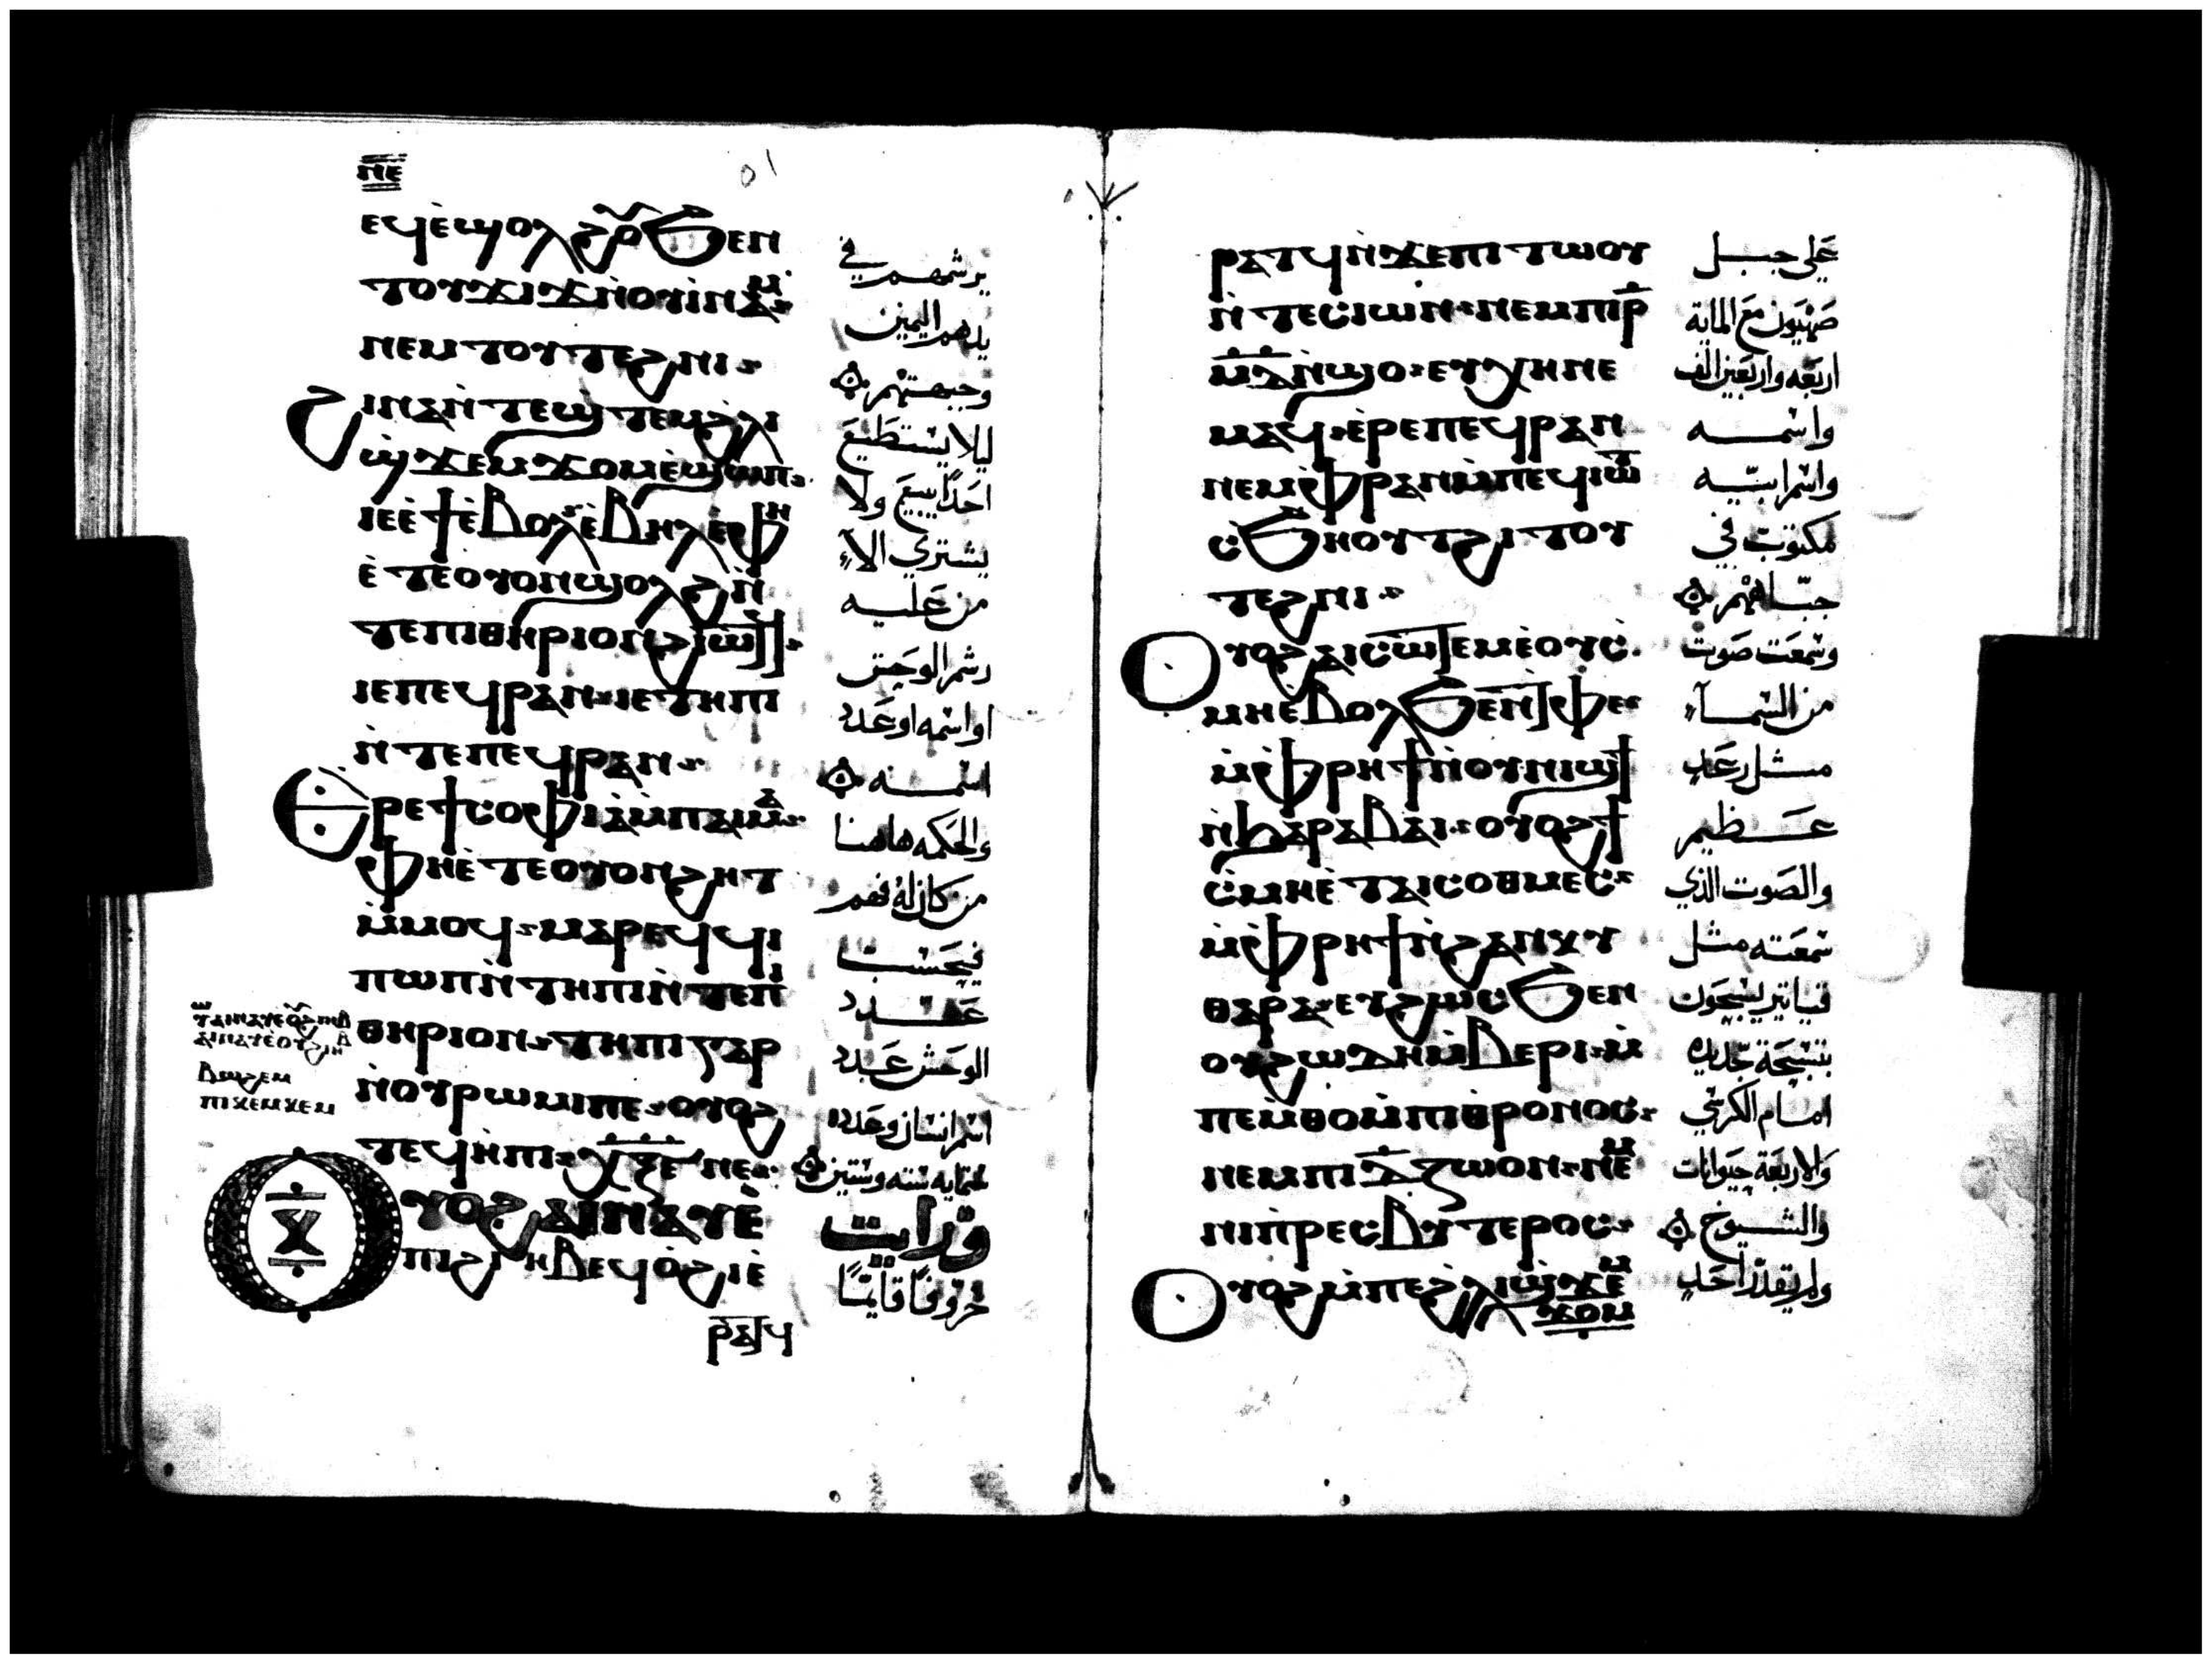 ⲛⲉ
ⲉϥⲉ̀ϣⲟⲗϩⲟⲩ ϧⲉⲛ
ⲧⲟⲩϫⲓϫ ⲛ̀ⲟⲩⲓ̀ⲛⲁⲙ
ⲛⲉⲙ ⲧⲟⲩⲧⲉϩⲛⲓ
ϩⲓⲛⲁ ⲛ̀ⲧⲉϣⲧⲉⲙϩ̀ⲗⲓ
ϣ̀ϫⲉⲙϫⲟⲙ ⲉ̀ϣⲱⲡ
ⲓⲉ ⲉ̀ϯ ⲉ̀ⲃⲟⲗ ⲉ̀ⲃⲏⲗ ⲉ̀ⲫⲏ
ⲉ̀ⲧⲉⲟⲩⲟⲛ ϣⲟⲗϩ ⲛ̀
ⲧⲉⲡⲓⲑⲏⲣⲓⲟⲛ ϩⲓⲱⲧϥ
ⲓⲉ ⲡⲉϥⲣⲁⲛ ⲓⲉ ⲧⲏⲡⲓ
ⲛ̀ⲧⲉⲡⲉϥⲣⲁⲛ
ⲉⲣⲉ ϯⲥⲟⲫⲓⲁ ⲙ̀ⲡⲁⲓⲙⲁ
ⲫⲏ ⲉ̀ⲧⲉⲟⲩⲟⲛ ϩⲏⲧ
ⲙ̀ⲙⲟϥ ⲙⲁⲣⲉϥϥⲓ
ⲡⲱⲡ ⲛ̀ⲧⲏⲡⲓ ⲛ̀ⲧⲉⲡⲓ
ⲑⲏⲣⲓⲟⲛ ⲧⲏⲡⲓ ⲅⲁⲣ
ⲛ̀ⲟⲩⲣⲱⲙⲓ ⲡⲉ ⲟⲩⲟϩ
ⲧⲉϥⲏ̀ⲡⲓ ⲭⲝⲉ ⲡⲉ
ⲟⲩⲟϩ ⲁⲓⲛⲁⲩ ⲉ̀
ⲡⲓϩⲓⲏⲃ ⲉϥⲟ̀ϩⲓ ⲉ̀
ⲣⲁⲧϥ
ⲃⲱϩⲉⲙ
ⲡⲓϫⲉⲙϫⲉⲙ
ⲗ
يرشمهم في
يدهم اليمين
وجبهتهم
ليلا يستطيع
احدًا يبيع ولا
يشتري الاّ
من عليه
رشم الوحش
او اسمه او عدد
اسمه
والحكمه هاهنا
من كان له فهم
فيحسب
عدد
الوحش عدد
اسم انسان وعدده
ستمايه سته وستين
ورايت
خروفًا قايمًا
ⲣⲁⲧϥ ⲛ̀ϫⲉⲡⲓⲧⲱⲟⲩ
ⲛ̀ⲧⲉⲥⲓⲱⲛ ⲛⲉⲙ ⲡⲓⲣ
ⲙⲇ ⲛ̀ϣⲟ ⲉⲩⲭⲏ ⲛⲉ
ⲙⲁϥ ⲉ̀ⲣⲉ ⲡⲉϥⲣⲁⲛ
ⲛⲉⲙ ⲫⲣⲁⲛ ⲙ̀ⲡⲉϥⲓⲱⲧ
ⲥ̀ϧⲏⲟⲩⲧ ϩⲓ ⲧⲟⲩ
ⲧⲉϩⲛⲓ
ⲟⲩⲟϩ ⲁⲓⲥⲱⲧⲉⲙ ⲉ̀ⲟⲩⲥ
ⲙⲏ ⲉ̀ⲃⲟⲗ ϧⲉⲛ ⲧⲫⲉ
ⲙ̀ⲫⲣⲏϯ ⲛ̀ⲟⲩⲛⲓϣϯ
ⲛ̀ϧⲁⲣⲁⲃⲁⲓ ⲟⲩⲟϩ ϯ
ⲥ̀ⲙⲏ ⲉ̀ⲧⲁⲓⲥⲟⲑⲙⲉⲥ
ⲙ̀ⲫⲣⲏϯ ⲛ̀ϩⲁⲛⲕⲩ
ⲑⲁⲣⲁ ⲉⲩϩⲱⲥ ϧⲉⲛ
ⲟⲩϩⲱⲇⲏ ⲙ̀ⲃⲉⲣⲓ ⲙ̀
ⲡⲉⲙ̀ⲑⲟ ⲙ̀ⲡⲓⲑⲣⲟⲛⲟⲥ
ⲛⲉⲙ ⲡⲓⲇ ⲛ̀ⲍⲱⲟⲛ ⲛⲉⲙ
ⲛⲓⲡⲣⲉⲥⲃⲩⲧⲉⲣⲟⲥ
ⲟⲩⲟϩ ⲙ̀ⲡⲉϩ̀ⲗⲓ ϣ̀ϫⲉⲙ
ϫⲟⲙ
علي جبل
صهيون مع المايه
اربعه واربعين الف
واسمه
واسم ابيه
مكتوب في
جباههم
وسمعت صوت
من السمآء
مثل رعد
عظيم
والصوت الذي
سمعته مثل
قياتير يسبحون
بتسبحة جديده
امام الكرسي
والاربعة حيوانات
والشيوخ
ولم يقدر احد